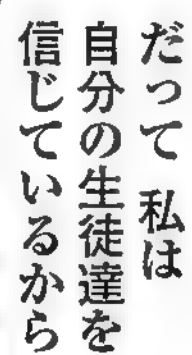 だって 私は
自分の生徒達を
信じているから